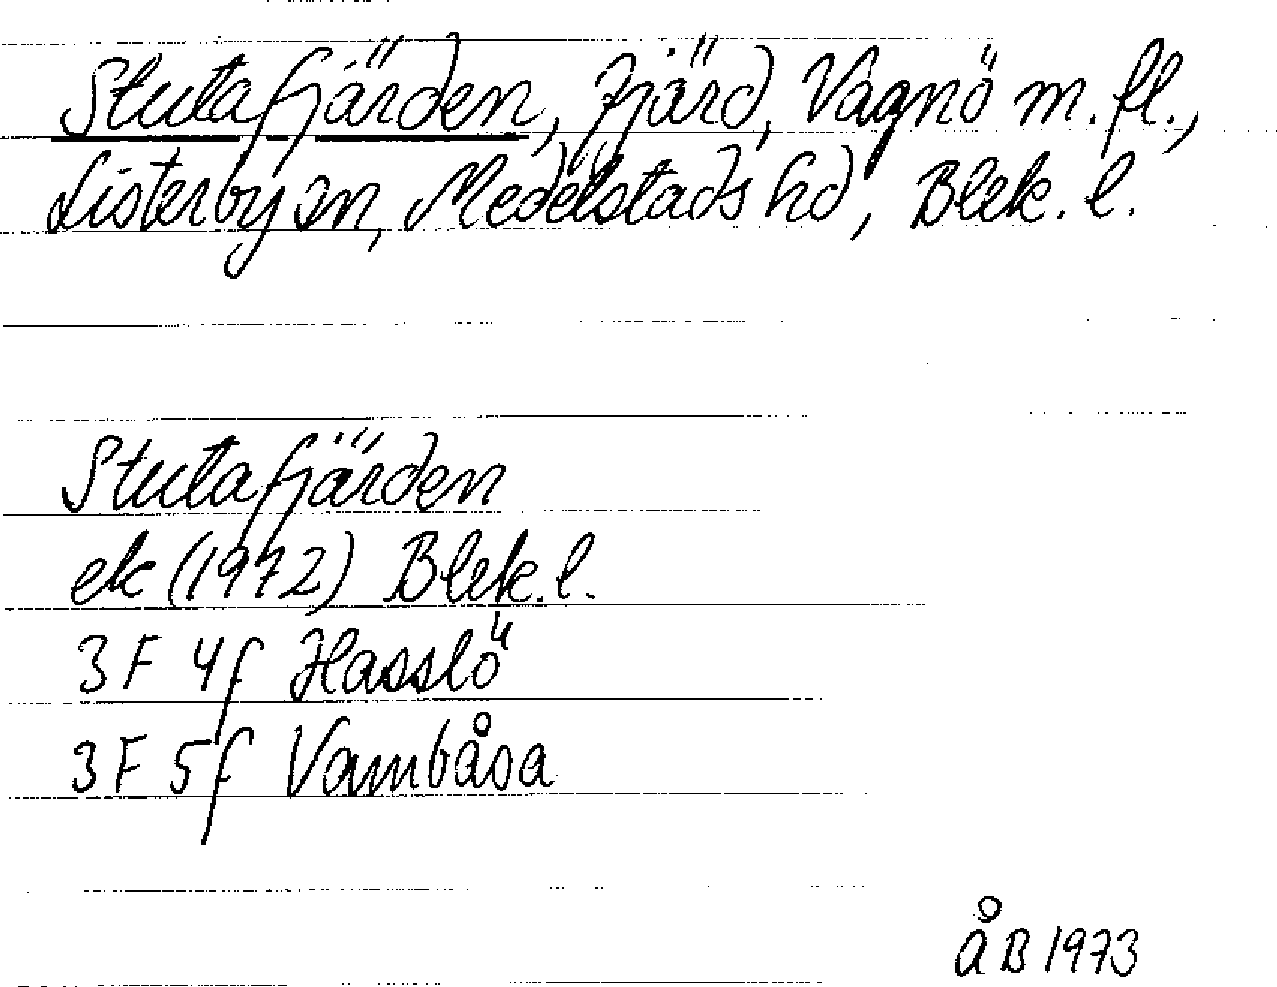 Stutafjärden, fjärd, Vagnö m.fl.,
Listerby sn, Medelstads hd, Blek. l.
Stutafjärden
ek (1972) Blek. l.
3 F 4f Hasslö
3 F 5f Vambåsa
ÅB 1973